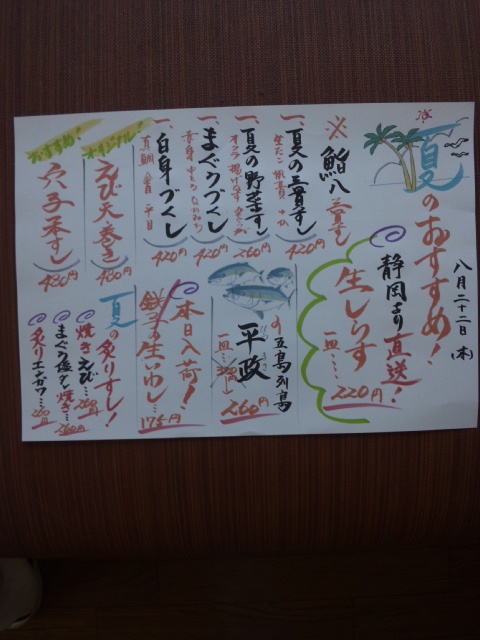 八月二十二日(木)
夏のおすすめ!
静岡より直送!
生しらす
一皿…220円
※鮨八三貫
一、夏の三貫すし
420円
一、夏の野菜すし
260円
一、まぐろづくし
420円
一、白身づくし
真鯛
平目
420円
オリジナル!
えび天巻き
460円
おすすめ!
穴子一本すし
480円
五島列島の
平政
一皿…
260円
本日入荷!
鮮の生いわし…
175円
夏の炙りすし!
焼きえび…
まぐろ塩タレ焼き…
260円
炙りエンガワ…